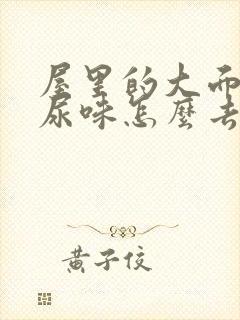 屋里的大而
尿味怎麼去
黄子佼